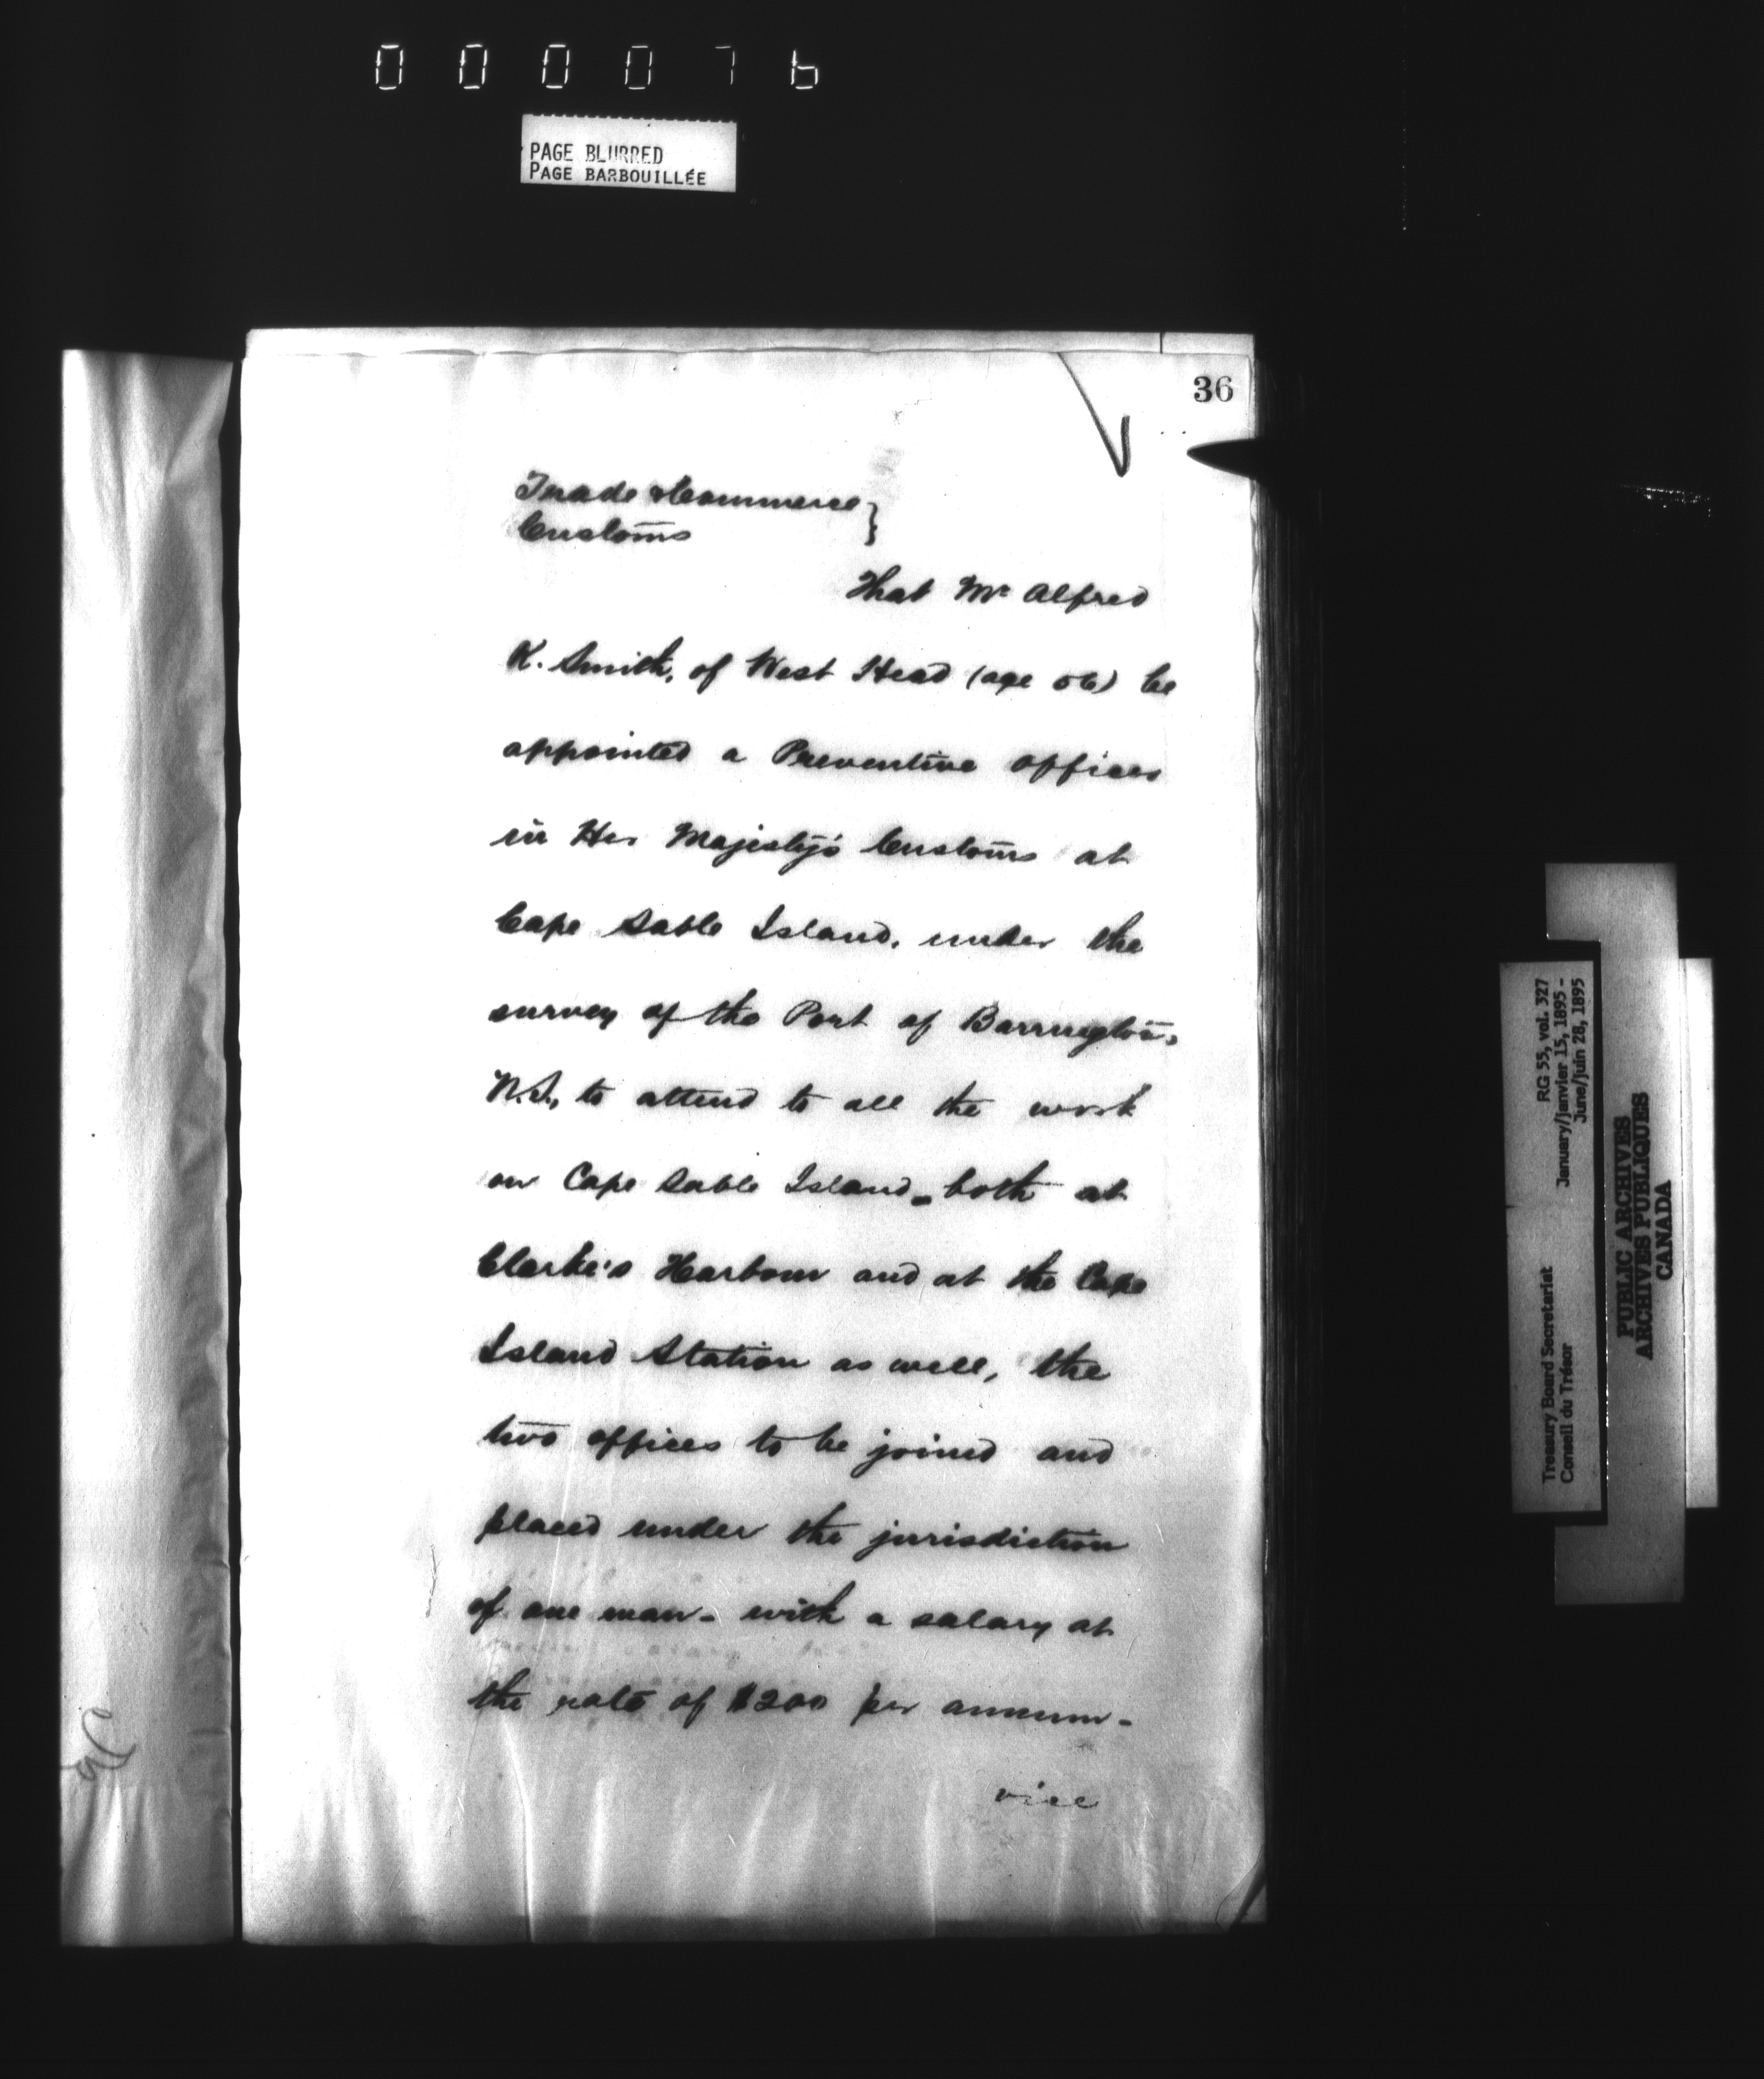 000076
PAGE BLURRED
PAGE BARBOUILLÉE
36
Trade & Commerce }
Customs
That Mr Alfred
K. Smith, of West Head (age 56) be
appointed a Preventive Officer
in Her Majesty's Customs at
Cape Sable Island, under the
survey of the Port of Barrington,
N.S., to attend to all the work
on Cape Sable Island - both at
Clarke's Harbour and at the Cape
Island Station as well, the
two offices to be joined and
placed under the jurisdiction
of one man - with a salary at
the rate of $200 per annum -
vice
Treasury Board Secretariat RG 55, vol. 327
Conseil du Trésor January/janvier 15, 1895 -
June/juin 28, 1895
PUBLIC ARCHIVES
ARCHIVES PUBLIQUES
CANADA